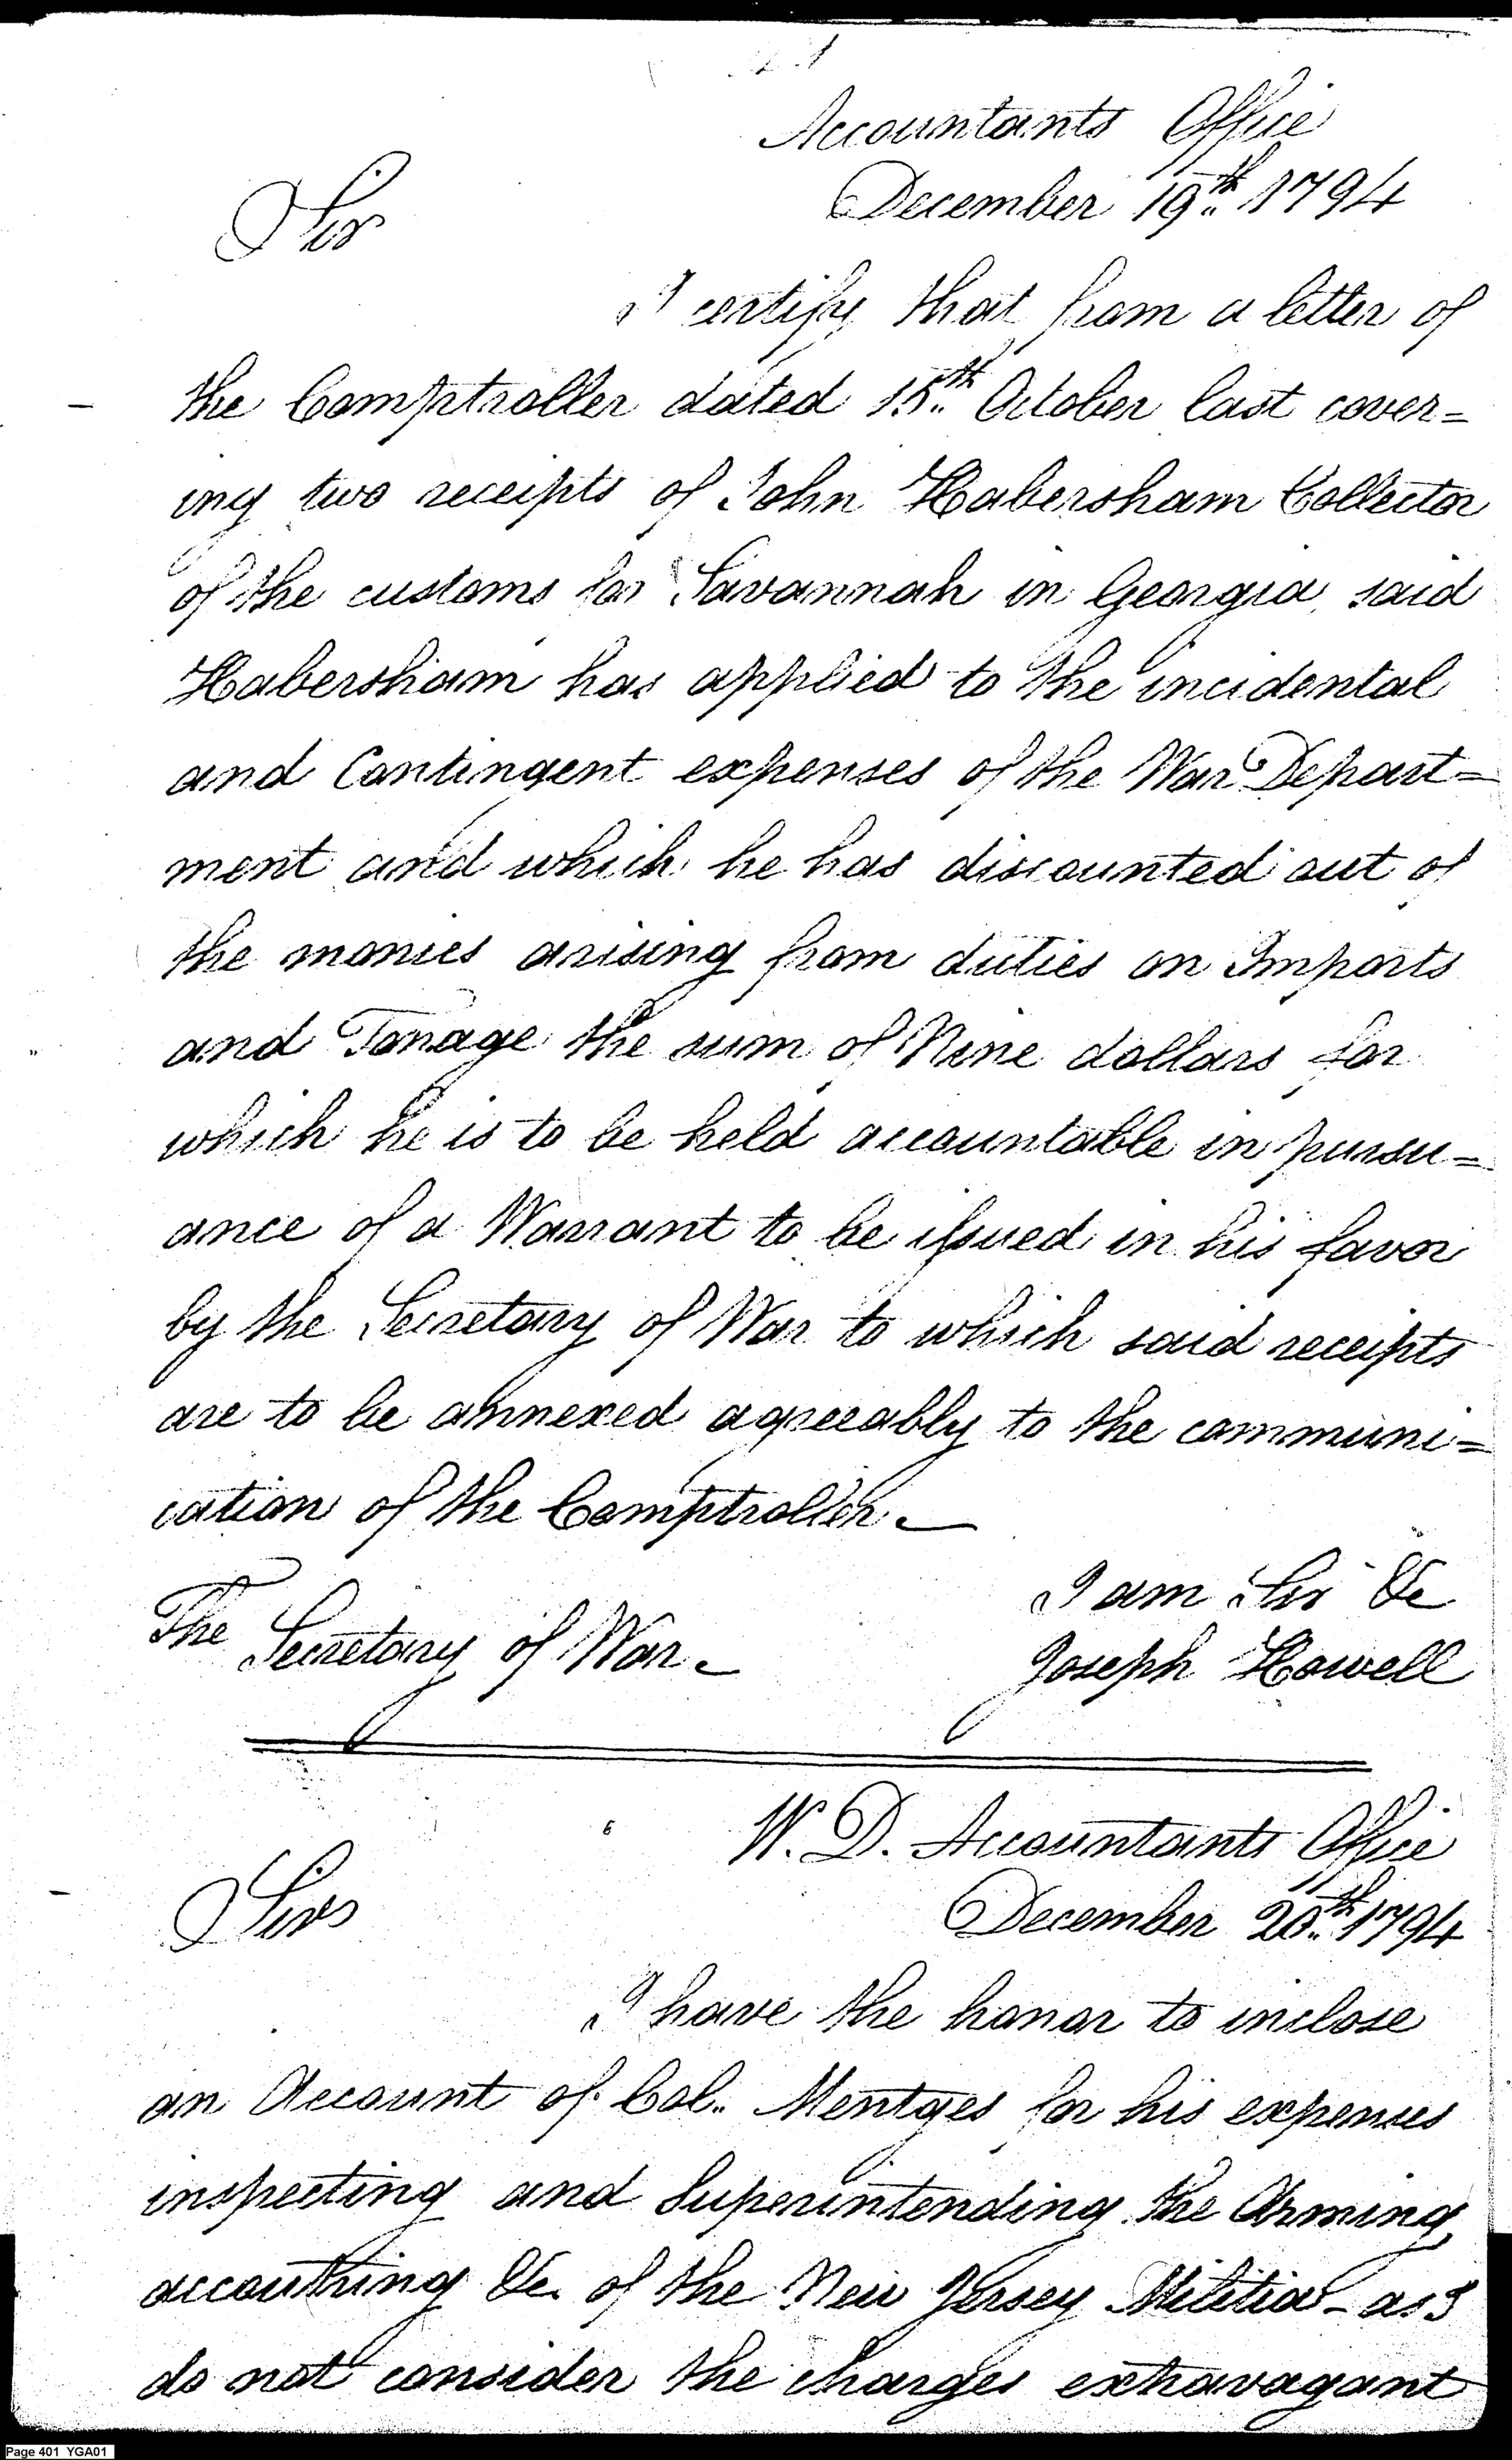 Accountants Office
December 19th 1794
Sir
I certify that from a letter of
the Comptroller dated 15th October last cover=
ing two receipts of John Habersham Collector
of the customs for Savannah in Georgia, said
Habersham has applied to the incidental
and Contingent expenses of the War Depart=
ment and which he has discounted out of
the monies arising from duties on Imports
and Tonage the sum of Nine dollars for
which he is to be held accountable in pursu=
ance of a Warrant to be issued in his favor
by the Secretary of War to which said receipts
are to be annexed agreeably to the communi=
cation of the Comptroller.
I am Sir &c
The Secretary of War.
Joseph Howell
W. D. Accountants Office
December 20th 1794
Sir
I have the honor to inclose
an Account of Col. Mentges for his expenses
inspecting and Superintending the Arming,
accouthring &c. of the New Jersey Militia - as I
do not consider the charges extravagant
Page 401 YGA01